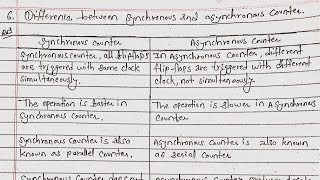 6. Difference between Synchronous and asynchronous Counter.
Synchronous Counter
Asynchronous Counter
Synchronous Counter, all flip flops are triggered with same clock simultaneously.
In Asynchronous Counter, different flip-flops are triggered with different clock, not simultaneously.
The operation is faster in Synchronous Counter.
The operation is slower in Asynchronous Counter
Synchronous Counter is also known as parallel Counter.
Asynchronous Counter is also known as serial Counter
Synchronous Counter does not
Asynchronous Counter